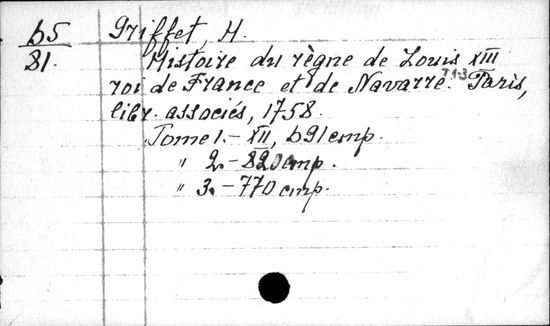 б5 Griffet, H.
81. Histoire du règne de Louis XIII
roi de France et de Navarre. Т.1-3 Paris,
libr. associés, 1758.
Tome 1.- XII, 691 стр.
" 2.- 820 стр.
" 3.- 770 стр.